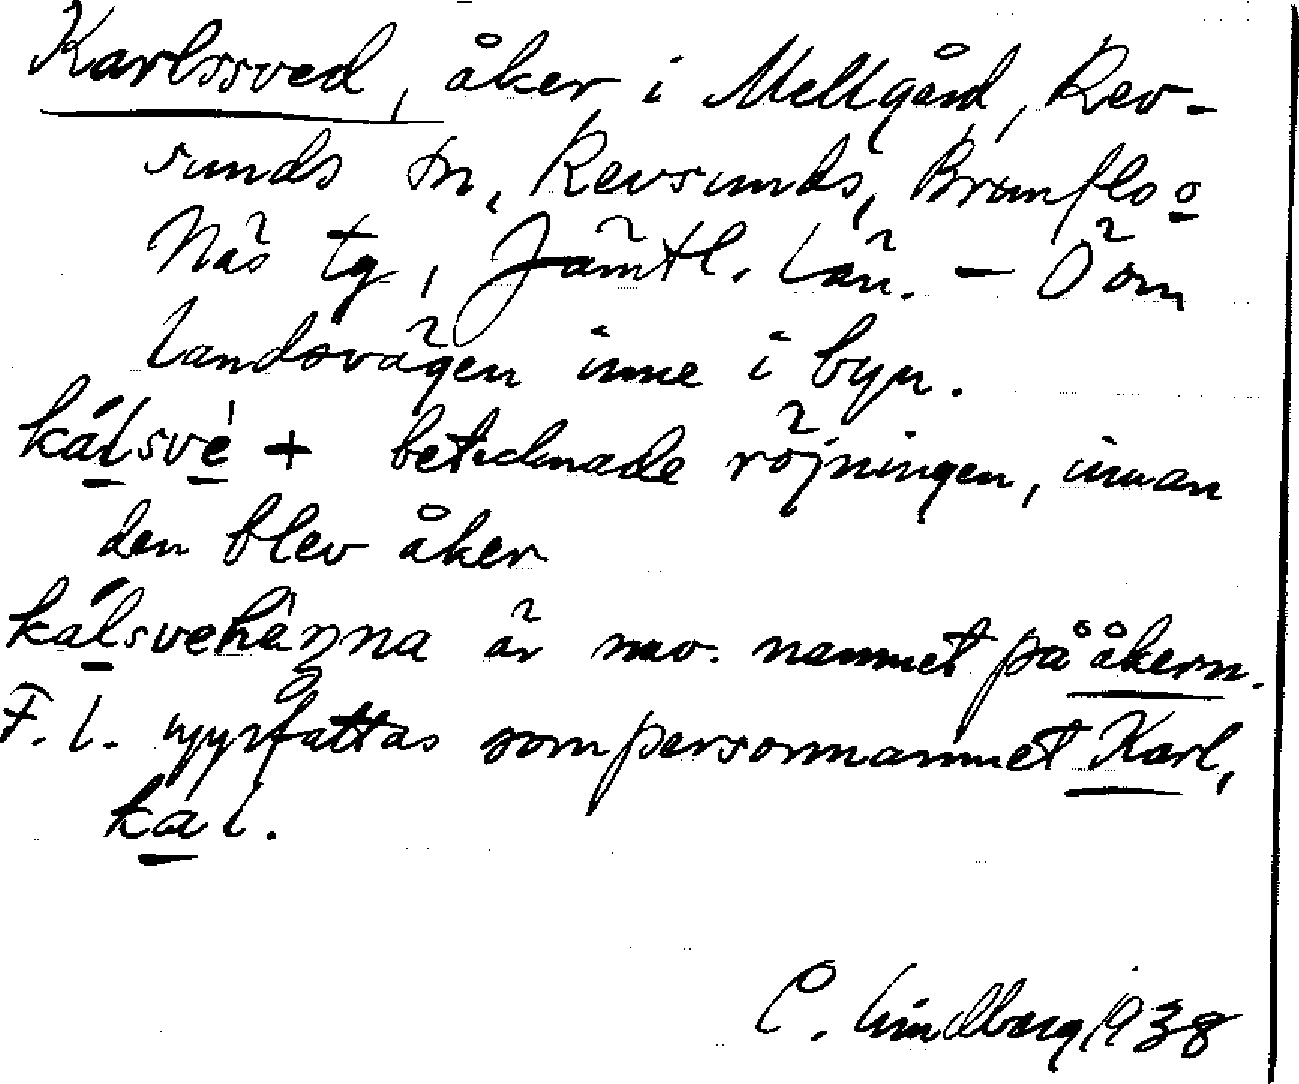 Karlssved, åker i Mellgård, Rev-
sunds sn, Revsunds, Brunflo o
Näs tg, Jämtl. län. – Ö om
landsvägen inne i byn.
kálsvè + betecknade röjningen, innan
den blev åker
kálsvehànna är nuv. namnet på åkern.
F. l. uppfattas som personnamnet Karl,
kal.
C. Lindberg 1938